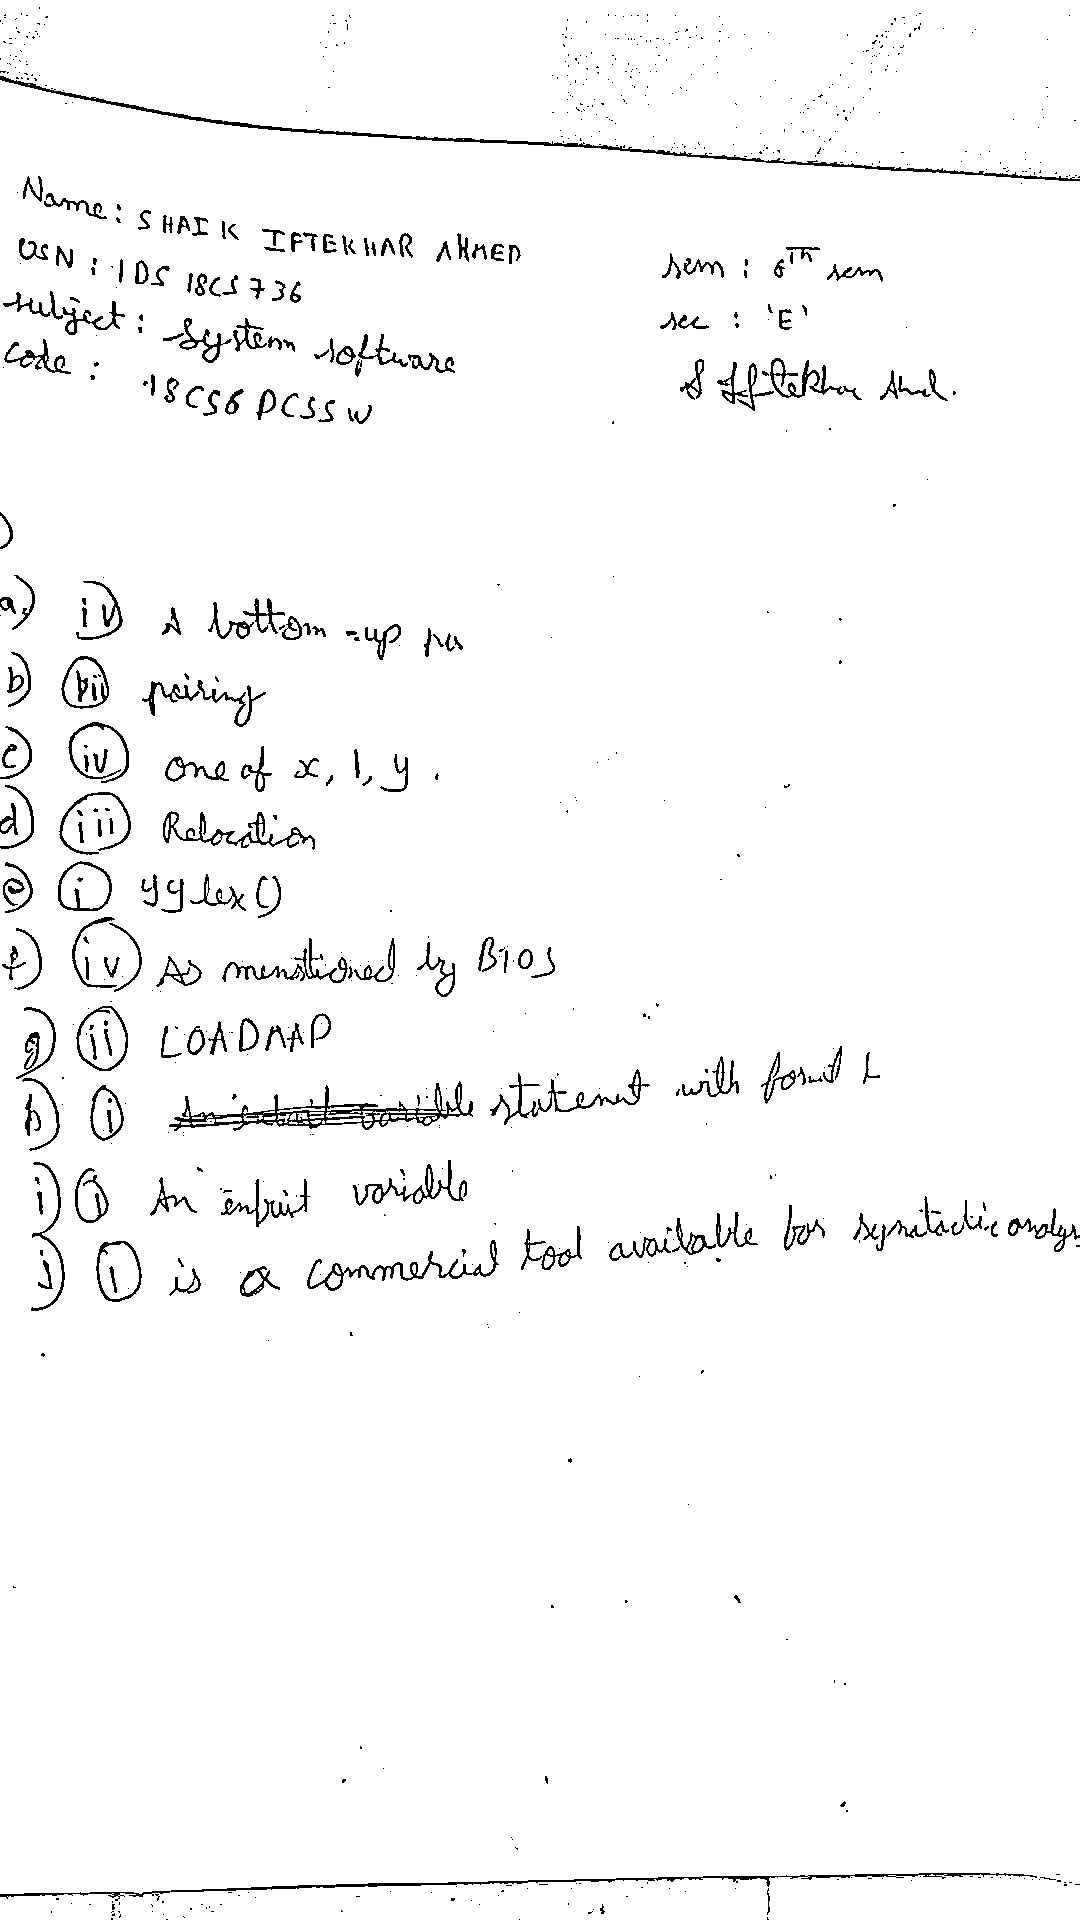 Name: SHAIK IFTEKHAR AHMED
USN: 1DS18CS736
subject: System software
code: 18CS6DCSSW
sem: 6TH sem
sec: 'E'
S Iftekhar Ahmed.
a) iv) A bottom-up pa
b) iii pairing
c) iv one of x, l, y.
d) iii Relocation
e) i yylex()
f) iv As menstioned by BIOS
g) ii LOADMAP
h) i statement with format 1
i) i An enfruit variable
j) i is a commercial tool available for synatactic analys